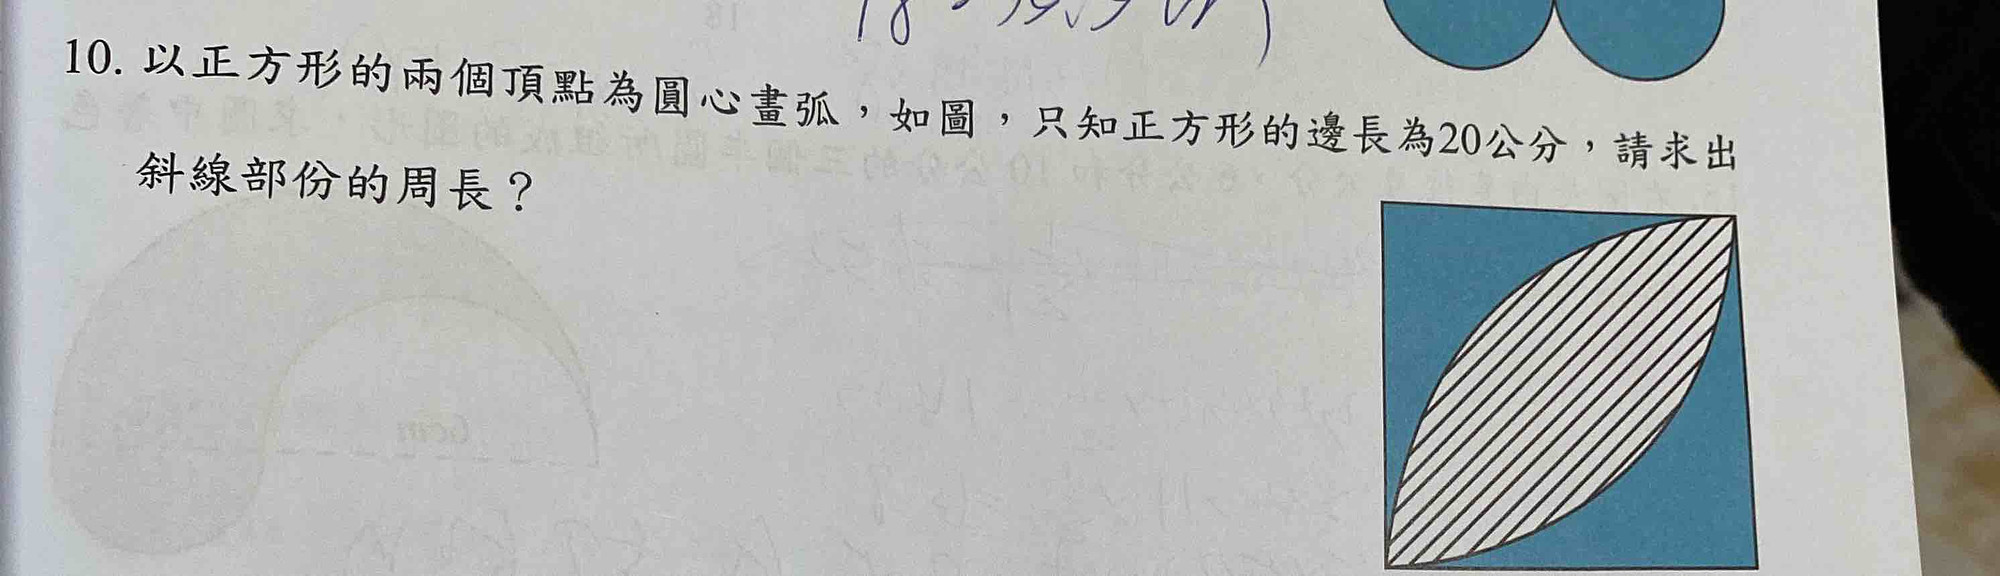 10. 以正方形的兩個頂點為圓心畫弧，如圖，只知正方形的邊長為20公分，請求出
斜線部份的周長？